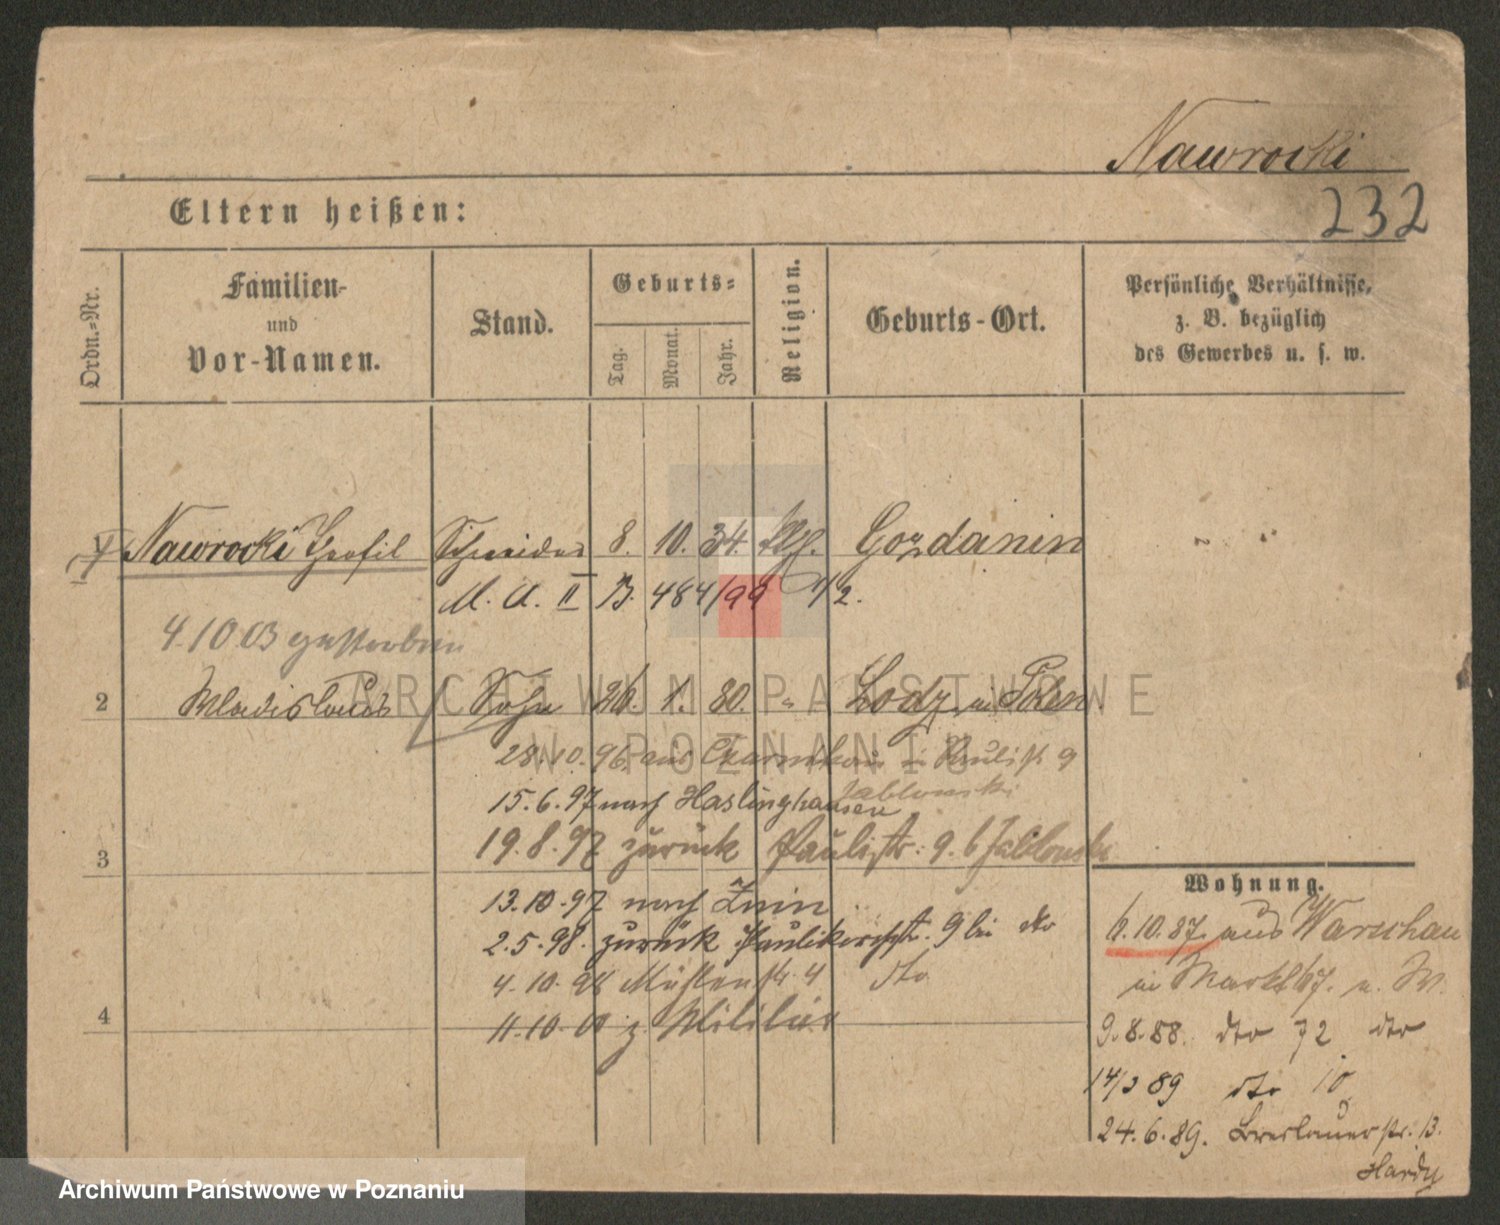 Nawrocki
232
Eltern heißen:
Ordn.-Nr.
Familien-
und
Vor-Namen.
Stand.
Geburts-
Tag.
Monat.
Jahr.
Religion.
Geburts-Ort.
Persönliche Verhältnisse,
z. B. bezüglich
des Gewerbes u. s. w.
1 Nawrocki Teofil Schneider 8. 10. 34. Gozdanin
M. A. II B. 484/99 1/2.
4.10 03 gestorben
2 Wladislaus Sohn 26. 1. 80. " Lodz in Polen
28.10.96 aus Czarnikau in Paulistr 9
Jablonski
15.6.97 nach Haslinghausen
3 19.8.97 zurück Paulistr. 9. b Jablonski
13.10.97 nach Znin
2.5.98. zurück Paulikirchstr. 9 bei dto
4.10.98 Mühlenstr. 4 dto
4 11.10.01 z. Militär
Wohnung.
6.10.87. aus Warschau
in Markt 67. n. W.
9.8.88. dto 72 dto
14/3 89 dto 10
24.6.89. Breslauerstr. 13.
Hardy
ARCHIWUM PAŃSTWOWE
W POZNANIU
Archiwum Państwowe w Poznaniu